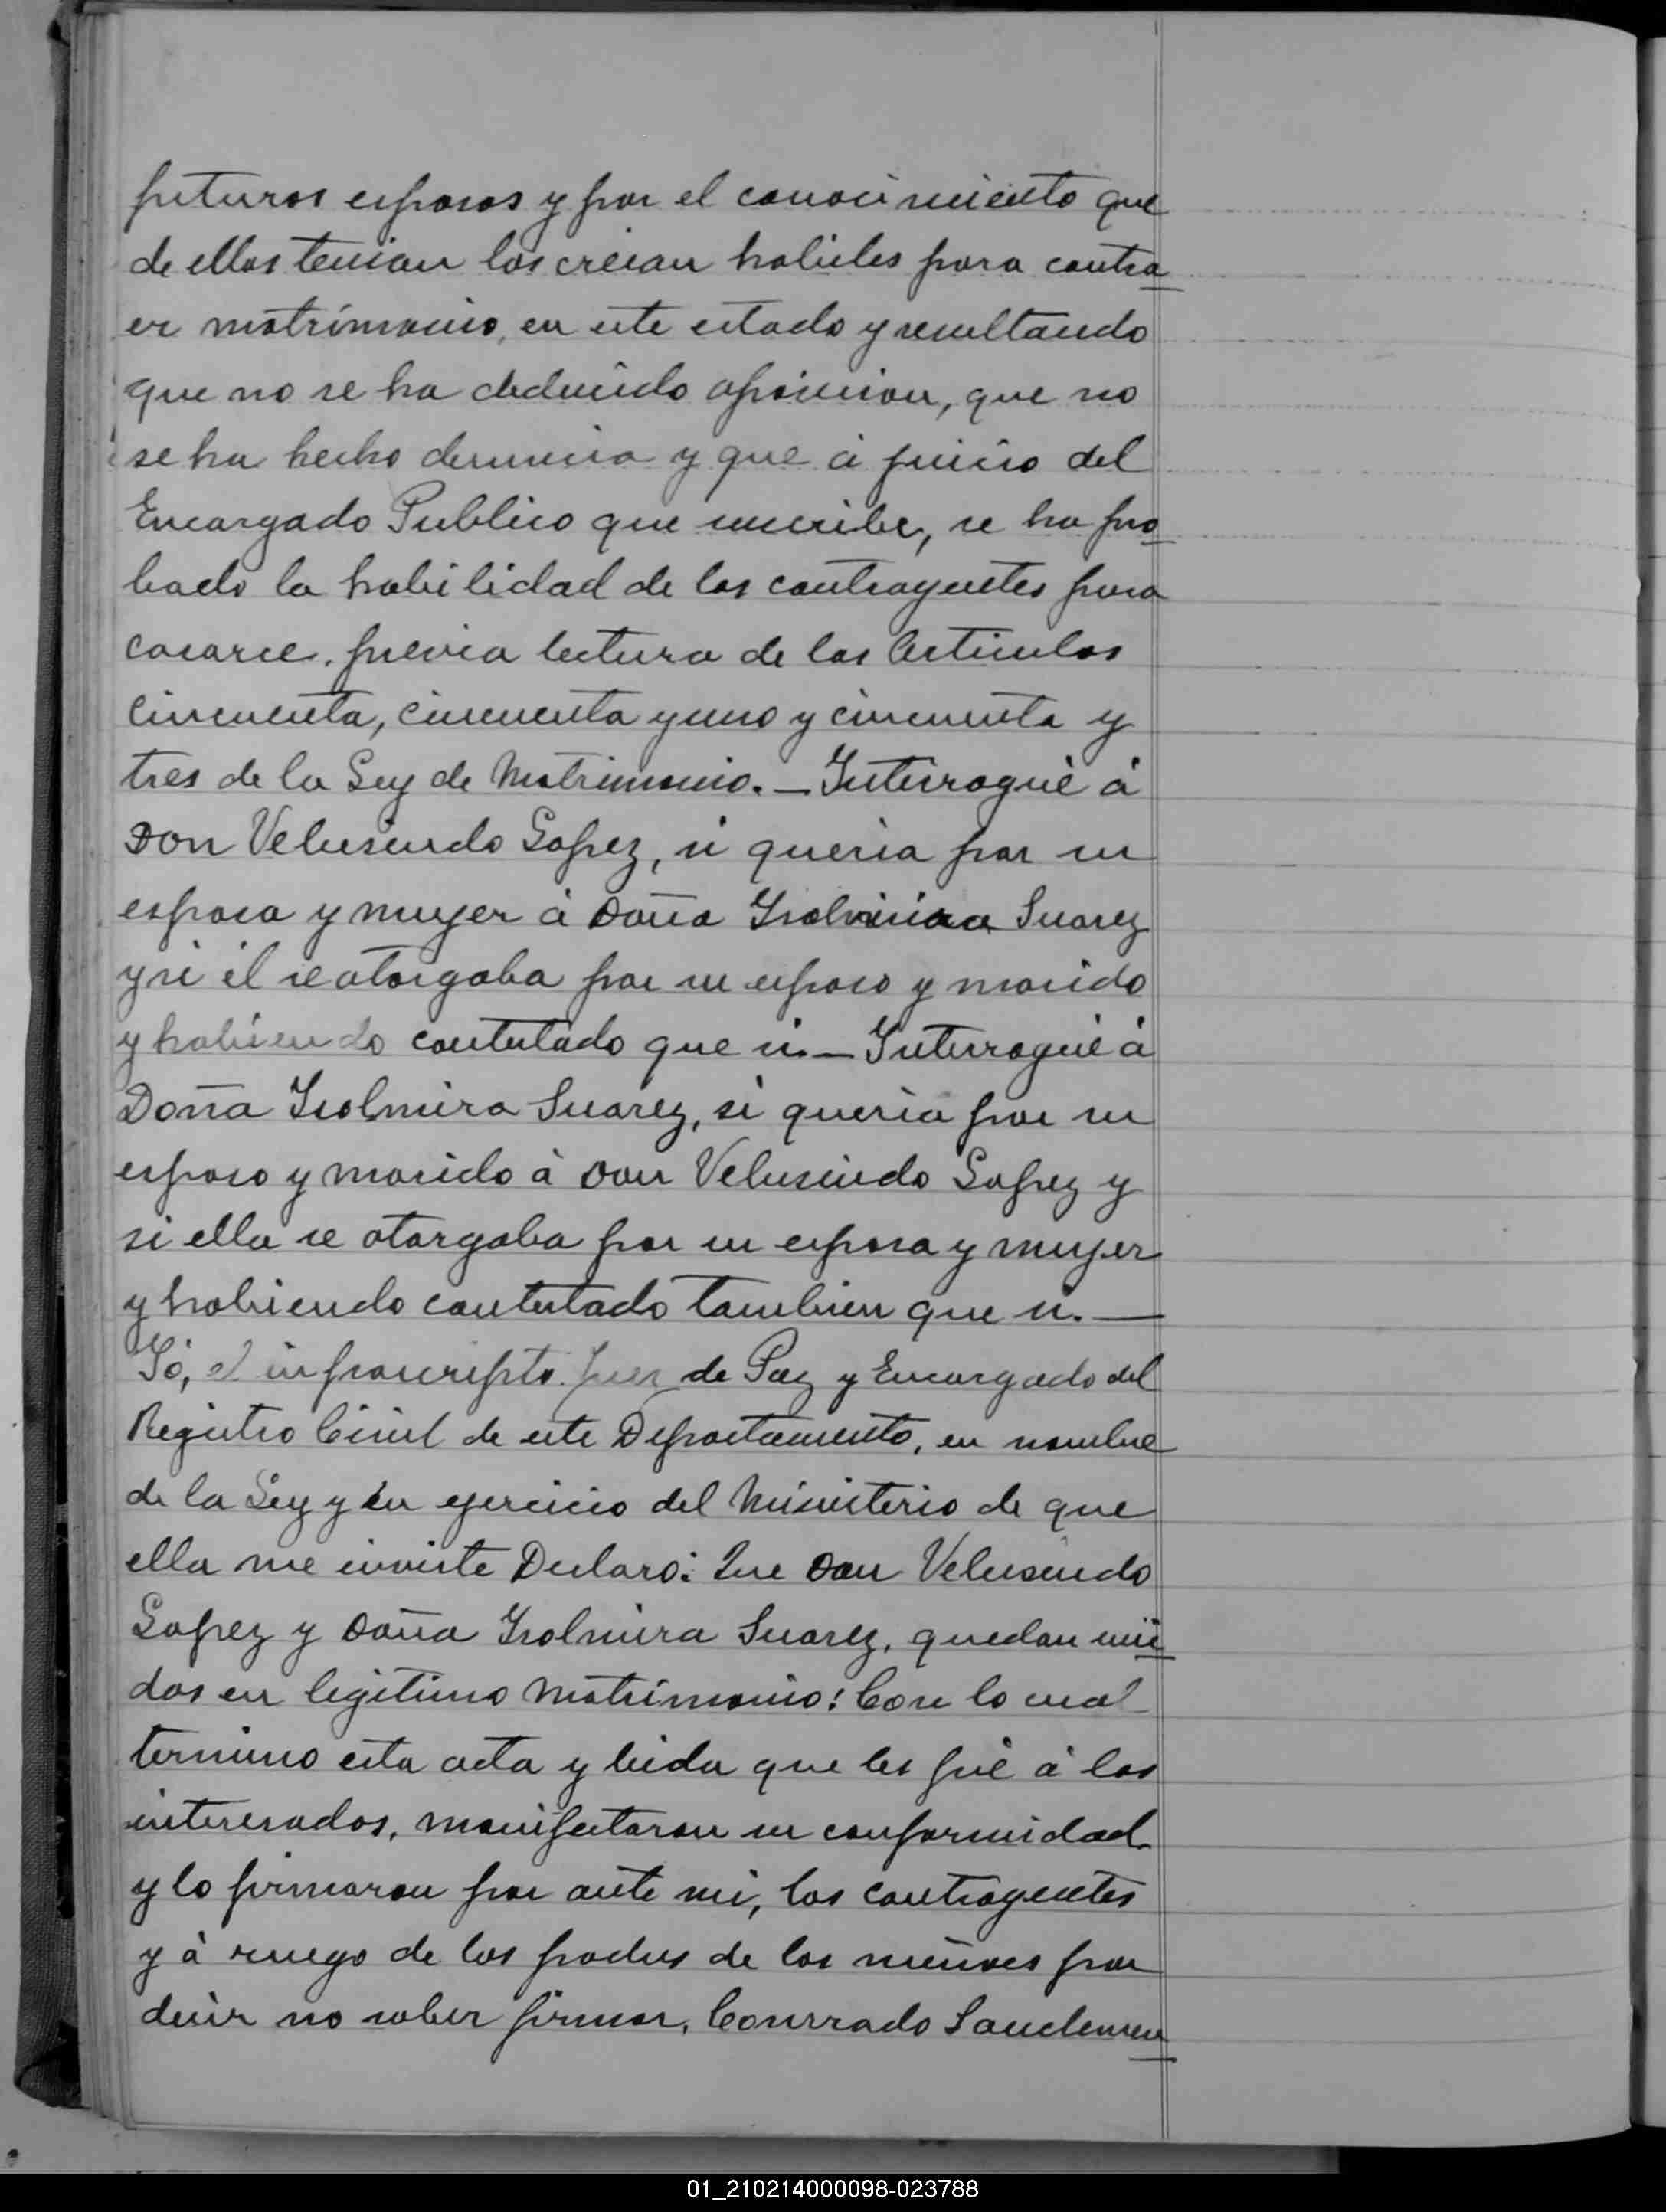 futuros esposos y por el conocimiento que
de ellos tenian los creian habiles para contra
er matrimonio, en este estado y resultando
que no se ha deducido oposicion, que no
se ha hecho denuncia y que á juicio del
Encargado Publico que suscribe, se ha pro
bado la habilidad de los contrayentes para
casarse, previa lectura de los Articulos
cincuenta, cincuenta y uno y cincuenta y
tres de la Ley de Matrimonio. — Interrogué á
Don Velusindo Lopez, si queria por su
esposa y mujer á Doña Isolmira Suarez
y si él se otorgaba por su esposo y marido
y habiendo contestado que si. — Interrogué á
Doña Isolmira Suarez, si queria por su
esposo y marido á Don Velusindo Lopez y
si ella se otorgaba por su esposa y mujer
y habiendo contestado tambien que si. —
Yó, el infrascripto Juez de Paz y Encargado del
Registro Civil de este Departamento, en nombre
de la Ley y en ejercicio del Ministerio de que
ella me inviste Declaro: Que Don Velusindo
Lopez y Doña Isolmira Suarez, quedan uni
dos en legitimo Matrimonio: Con lo cual
termino esta acta y leida que les fué á los
interesados, manifestaron su conformidad
y lo firmaron por ante mi, los contrayentes
y á ruego de los padres de los menores por
decir no saber firmar, Conrrado Sandemen
01_210214000098-023788